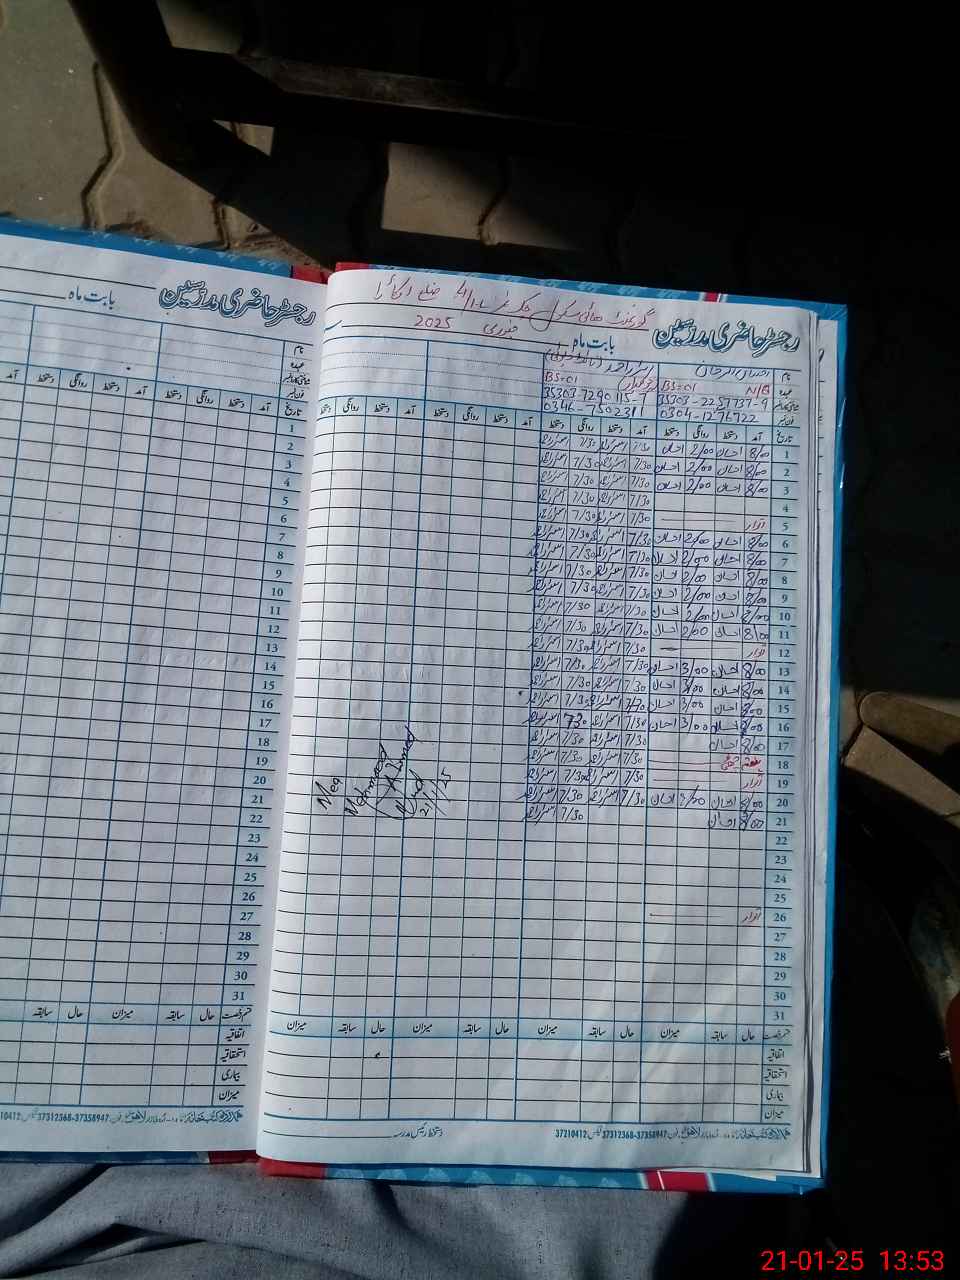 رجسٹر حاضری مدرسین
بابت ماہ
نام
عہدہ
شناختی کارڈ نمبر
فون نمبر
تاریخ
آمد دستخط روانگی دستخط آمد دستخط روانگی دستخط آمد
1
2
3
4
5
6
7
8
9
10
11
12
13
14
15
16
17
18
19
20
21
22
23
24
25
26
27
28
29
30
31
قسم رخصت حال سابقہ میزان حال سابقہ
اتفاقیہ
استحقاقیہ
بیماری
میزان
37312368-37358947
گورنمنٹ ہائی سکول چک نمبر ضلع اوکاڑا
رجسٹر حاضری مدرسین بابت ماہ جنوری 2025
نام احسان الرحمان
عہدہ N/Q BS=01 چوکیدار BS=01
شناختی کارڈ نمبر 35303-2257737-9 35303-7290115-7
فون نمبر 0304-1276722 0346-7502311
تاریخ آمد دستخط روانگی دستخط آمد دستخط روانگی دستخط آمد دستخط روانگی دستخط
1 8/00 احسان 2/00 احسان 7/30 7/30
2 8/00 احسان 2/00 احسان 7/30 7/30
3 8/00 احسان 2/00 احسان 7/30 7/30
4 7/30 7/30
5 اتوار 7/30 7/30
6 8/00 احسان 2/00 احسان 7/30 7/30
7 8/00 احسان 2/00 احسان 7/30 7/30
8 8/00 احسان 2/00 احسان 7/30 7/30
9 8/00 احسان 2/00 احسان 7/30 7/30
10 8/00 احسان 2/00 احسان 7/30 7/30
11 8/00 احسان 2/00 احسان 7/30 7/30
12 اتوار 7/30 7/30
13 8/00 احسان 3/00 احسان 7/30 7/30
14 8/00 احسان 3/00 احسان 7/30 7/30
15 8/00 احسان 3/00 احسان 7/30 7/30
16 8/00 احسان 3/00 احسان 7/30 7/30
17 8/00 احسان 7/30 7/30
18 ہفتہ چھٹی 7/30 7/30
19 اتوار 7/30 7/30
20 8/00 احسان 3/00 احسان 7/30 7/30
21 8/00 احسان 7/30
22
23
24
25
26 اتوار
27
28
29
30
31
Mea
Mehmood
Ahmad
21/1/25
قسم رخصت حال سابقہ میزان حال سابقہ میزان حال سابقہ میزان
اتفاقیہ
استحقاقیہ
بیماری
میزان
37312368-37358947 فیکس 37210412
دستخط رئیس مدرسہ
21-01-25 13:53